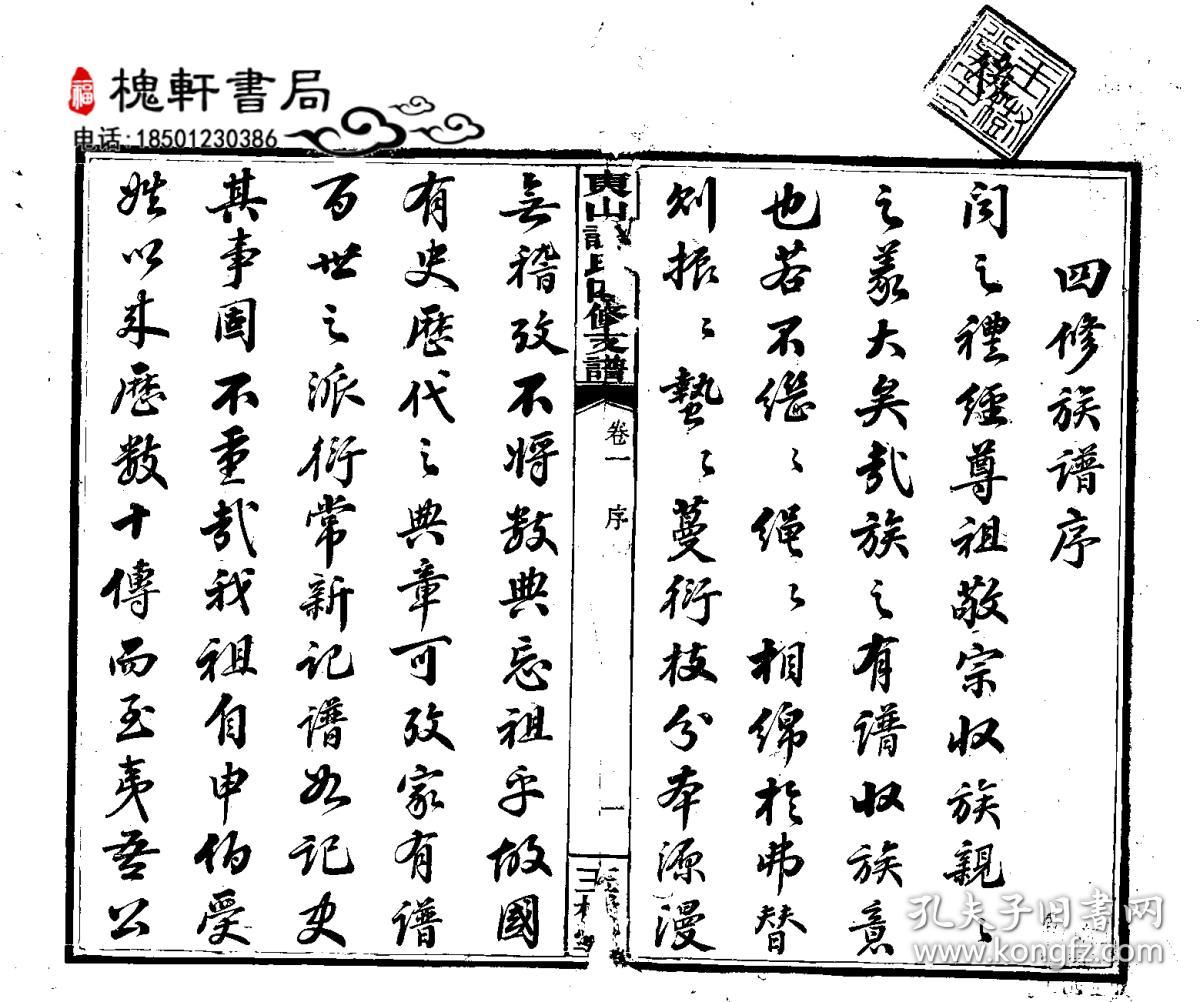 槐軒書局
电话:18501230386
四修族譜序
闻之禮經尊祖敬宗收族親之
之義大矣哉族之有譜收族意
也若不繼〻繩〻相綿於弗替
则振〻蟄〻蔓衍枝分本源漫
卷一
序
一
無稽攷不将数典忘祖乎故國
有史歷代之典章可攷家有譜
百世之派衍常新记譜如记史
其事固不重哉我祖自申伯受
姓以来歷数十傳而至夷吾公
孔夫子旧书网
www.kongfz.com